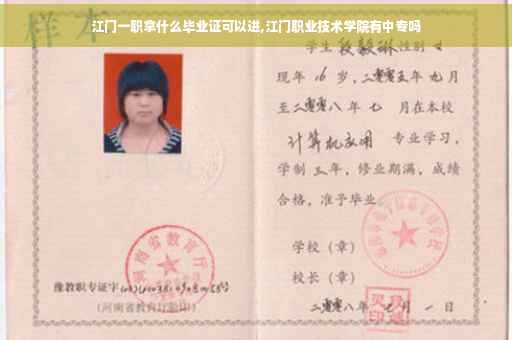 江门一职拿什么毕业证可以进,江门职业技术学院有中专吗
样本
学生 段毅琳 性别 女
现年 16 岁，二零零五年 九月
至二零零八年 七 月在本校
计算机应用 专业学习，
学制 三年，修业期满，成绩
合格，准予毕业。
学校（章）
校长（章）
二零零八年 七 月 一 日
河南省教育厅
豫教职专证字
（河南省教育厅验印）